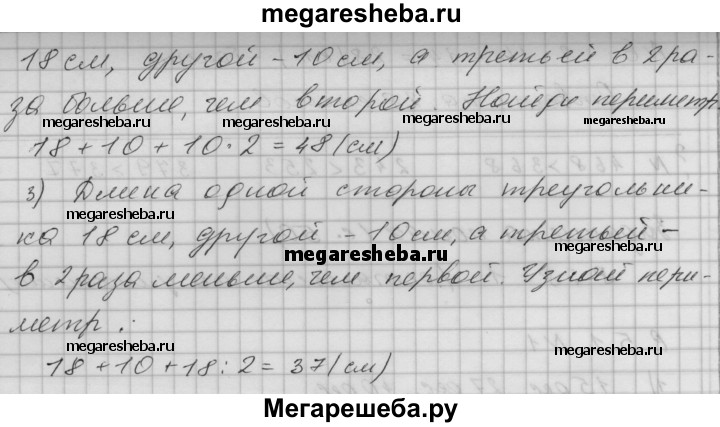 megaresheba.ru
18 см, другой - 10 см, а третьей в 2 ра-
за больше, чем второй. Найди периметр.
megaresheba.ru megaresheba.ru megaresheba.ru
18 + 10 + 10 · 2 = 48 (см)
3) Длина одной стороны треугольни-
megaresheba.ru megaresheba.ru
ка 18 см, другой - 10 см, а третьей -
megaresheba.ru megaresheba.ru
в 2 раза меньше, чем первой. Узнай пери-
megaresheba.ru
метр.
megaresheba.ru megaresheba.ru megaresheba.ru
18 + 10 + 18 : 2 = 37 (см)
Мегарешеба.ру